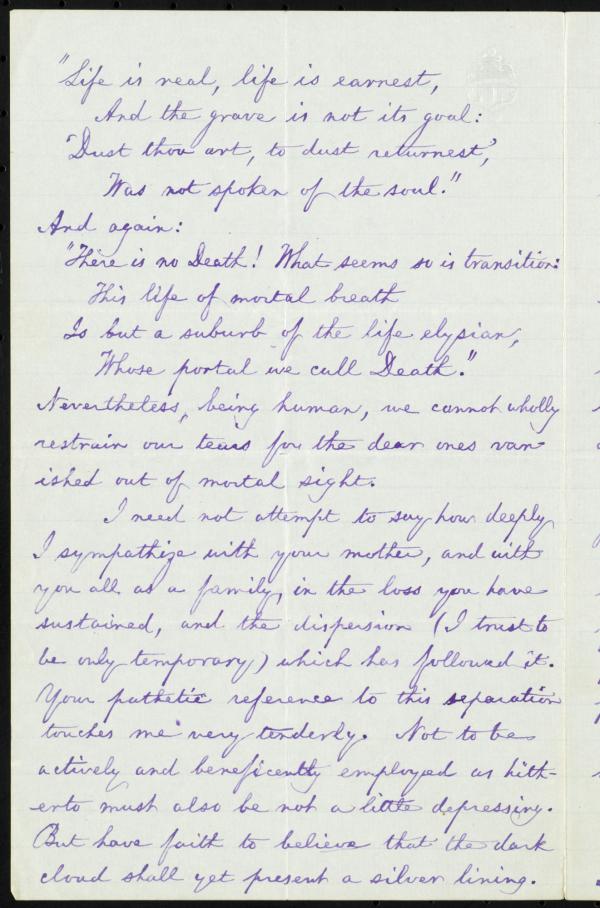 "Life is real, life is earnest,
And the grave is not its goal:
'Dust thou art, to dust returnest,'
Was not spoken of the soul."
And again:
"There is no Death! What seems so is transition:
This life of mortal breath
Is but a suburb of the life elysian,
Whose portal we call Death."
Nevertheless, being human, we cannot wholly
restrain our tears for the dear ones van-
ished out of mortal sight.
I need not attempt to say how deeply
I sympathize with your mother, and with
you all as a family, in the loss you have
sustained, and the dispersion (I trust to
be only temporary) which has followed it.
Your pathetic reference to this separation
touches me very tenderly. Not to be
actively and beneficently employed as hith-
erto must also be not a little depressing.
But have faith to believe that the dark
cloud shall yet present a silver lining.